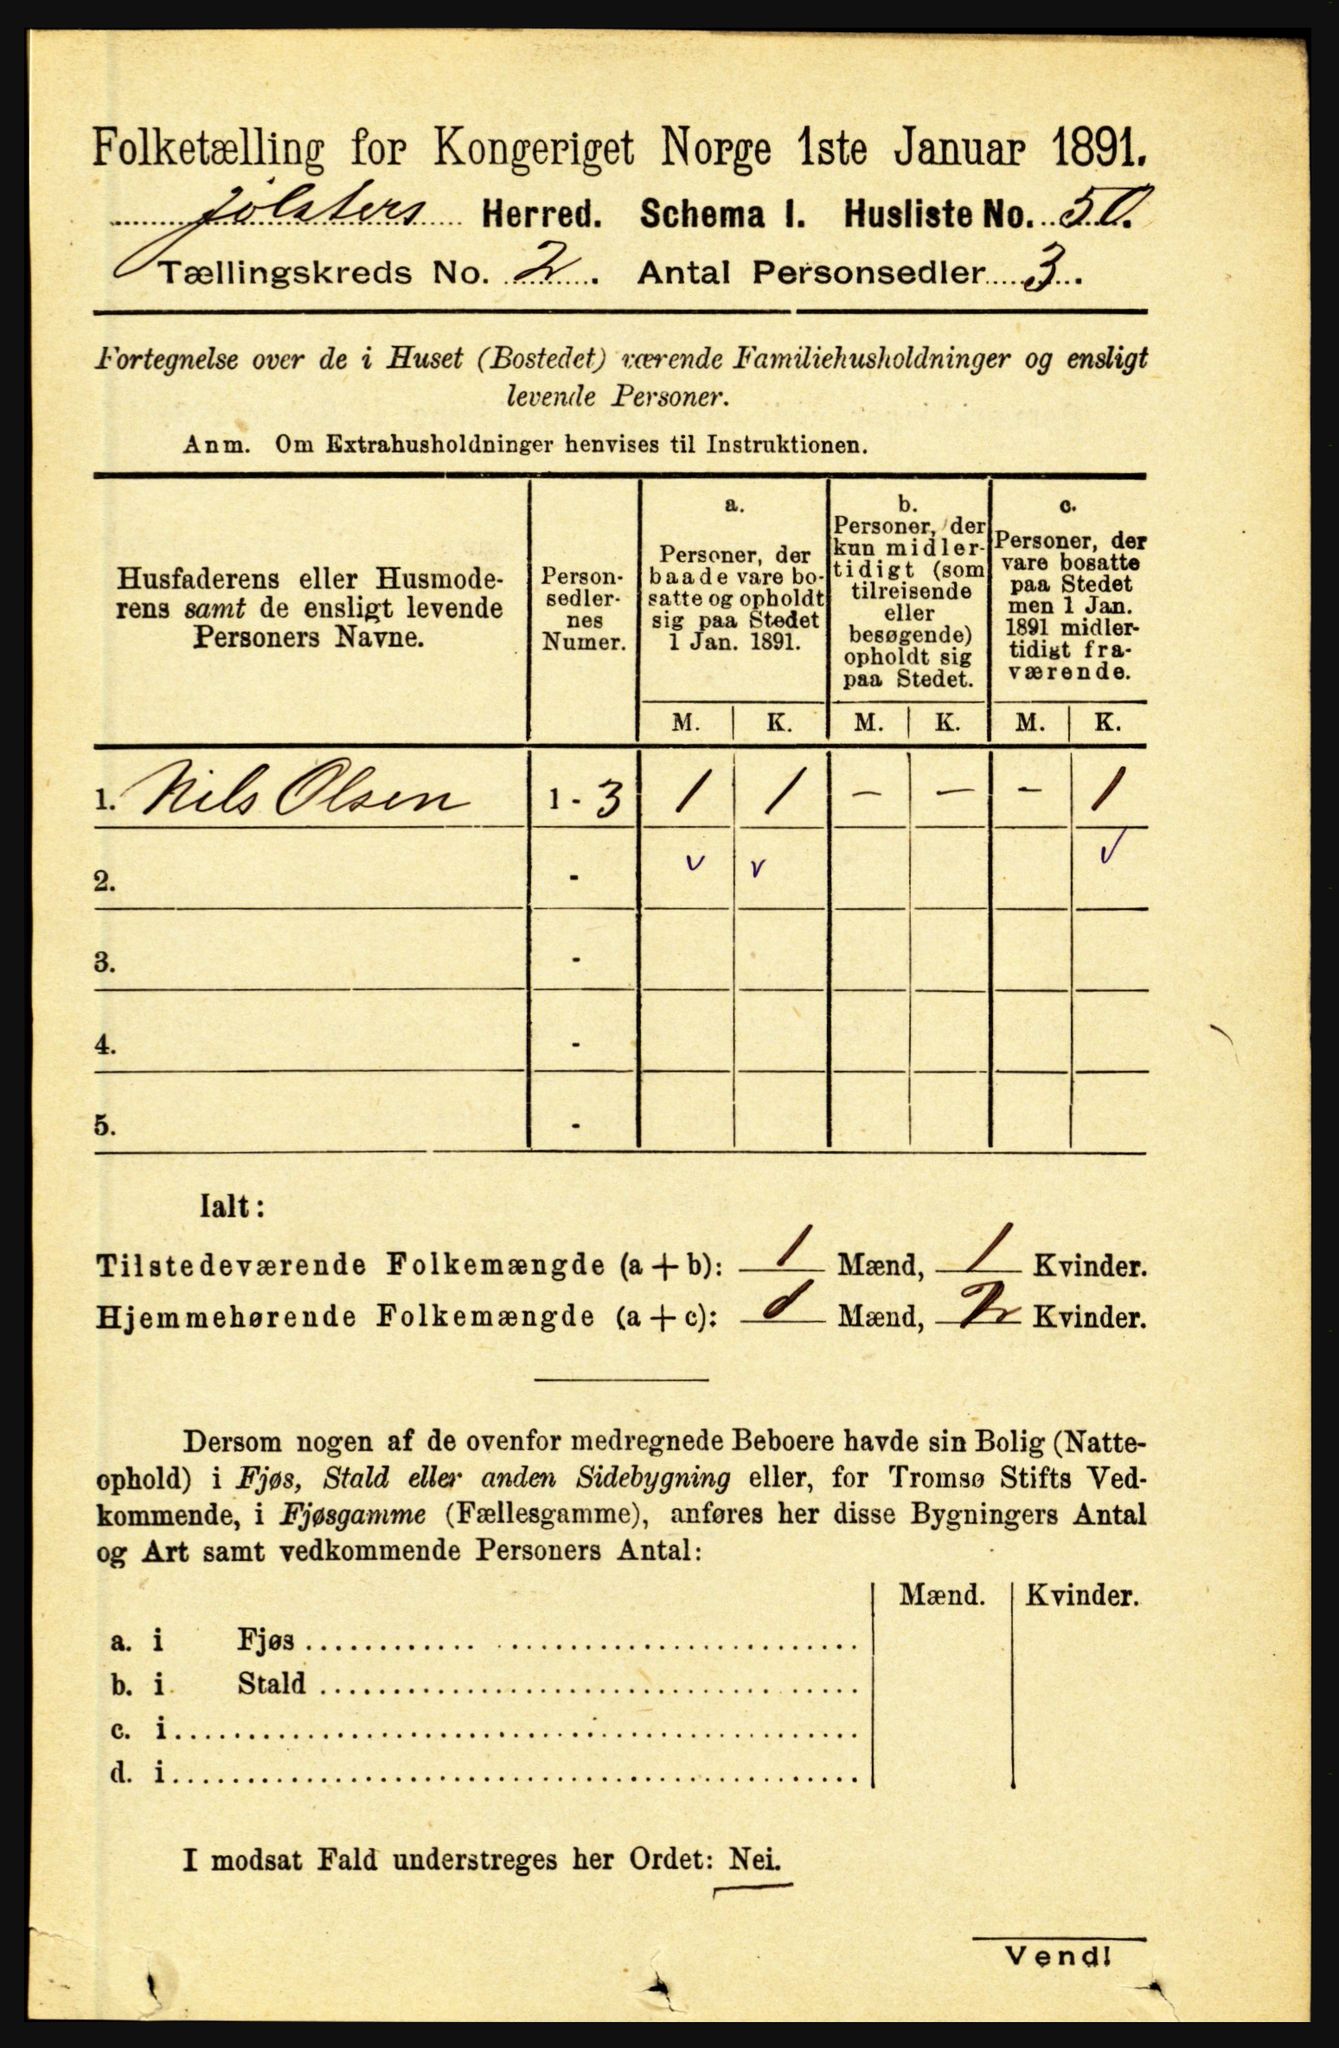 Folketælling for Kongeriget Norge 1ste Januar 1891.
Jølsters Herred. Schema I. Husliste No. 50.
Tællingskreds No. 2. Antal Personsedler 3.
Fortegnelse over de i Huset (Bostedet) værende Familiehusholdninger og ensligt
levende Personer.
Anm. Om Extrahusholdninger henvises til Instruktionen.
Husfaderens eller Husmode-
rens samt de ensligt levende
Personers Navne.
Person-
sedler-
nes
Numer.
a.
Personer, der
baade vare bo-
satte og opholdt
sig paa Stedet
1 Jan. 1891.
b.
Personer, der
kun midler-
tidigt (som
tilreisende
eller
besøgende)
opholdt sig
paa Stedet.
c.
Personer, der
vare bosatte
paa Stedet
men 1 Jan.
1891 midler-
tidigt fra-
værende.
M. K. M. K. M. K.
1. Nils Olsen 1 - 3 1 1 - - - 1
2. - v v v
3. -
4. -
5. -
Ialt:
Tilstedeværende Folkemængde (a + b): 1 Mænd, 1 Kvinder.
Hjemmehørende Folkemængde (a + c): 1 Mænd, 2 Kvinder.
Dersom nogen af de ovenfor medregnede Beboere havde sin Bolig (Natte-
ophold) i Fjøs, Stald eller anden Sidebygning eller, for Tromsø Stifts Ved-
kommende, i Fjøsgamme (Fællesgamme), anføres her disse Bygningers Antal
og Art samt vedkommende Personers Antal:
Mænd. Kvinder.
a. i Fjøs
b. i Stald
c. i
d. i
I modsat Fald understreges her Ordet: Nei.
Vend!